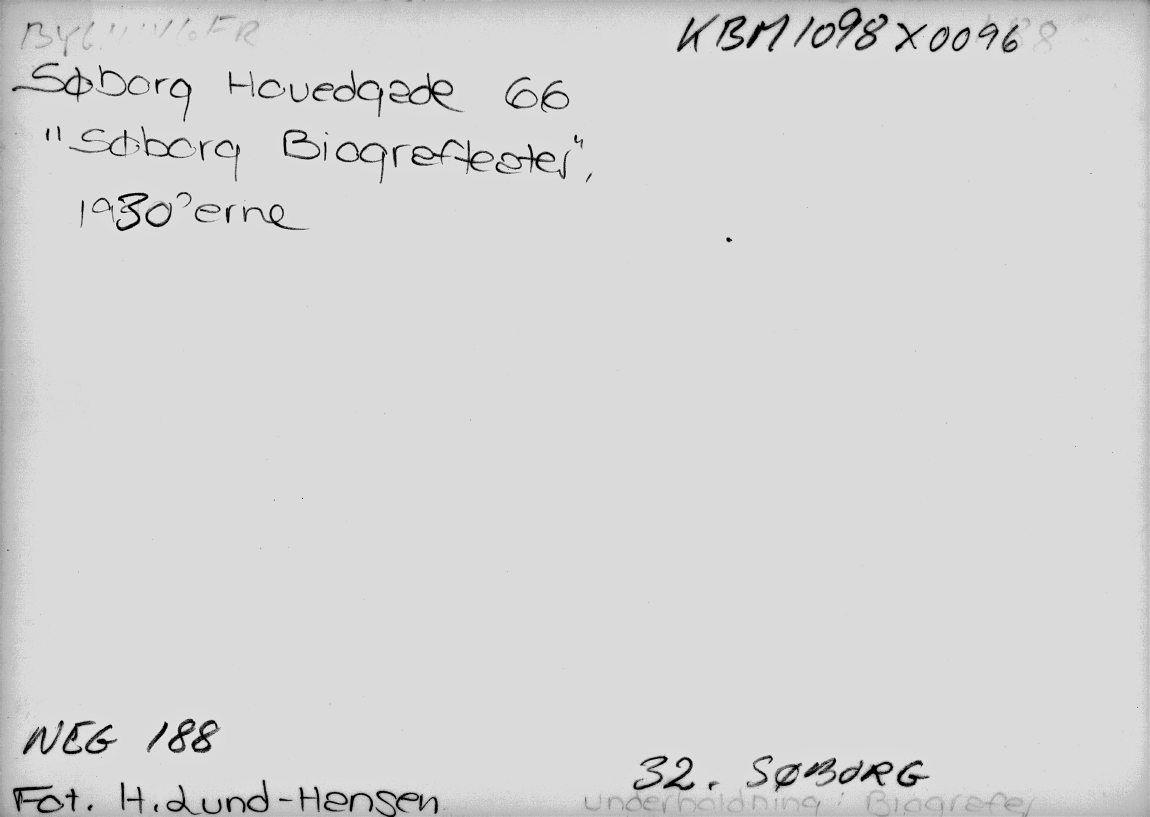 BYGNINGER
KBM 1098 X 0096
Søborg Hovedgade 66
"Søborg Biografteater",
1930'erne
NEG 188
32. SØBORG
Fot. H. Lund-Hansen
underholdning: Biografer